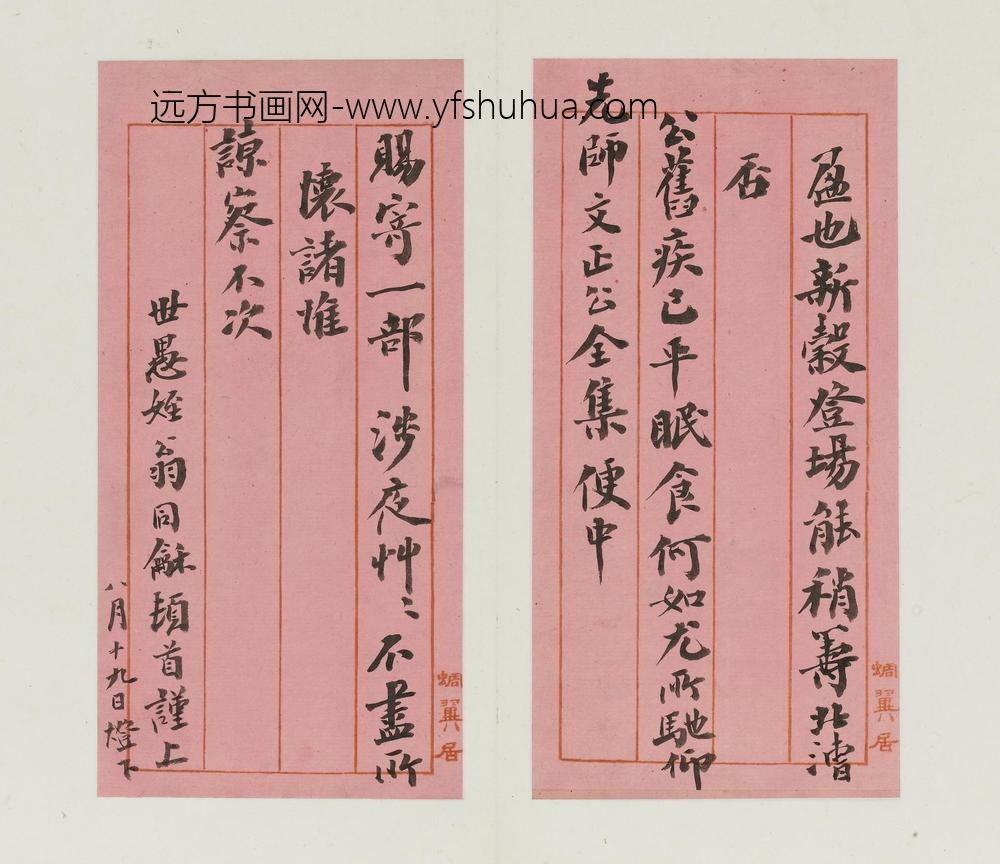 远方书画网-www.yfshuhua.com
盈也新穀登場能稍籌北漕
否
公舊疾已平眠食何如尤所馳仰
先師文正公全集便中
蜩翼居
賜寄一部涉夜艸〻不盡所
懷諸惟
諒察不次
世愚姪翁同龢頓首謹上
八月十九日燈下
蜩翼居